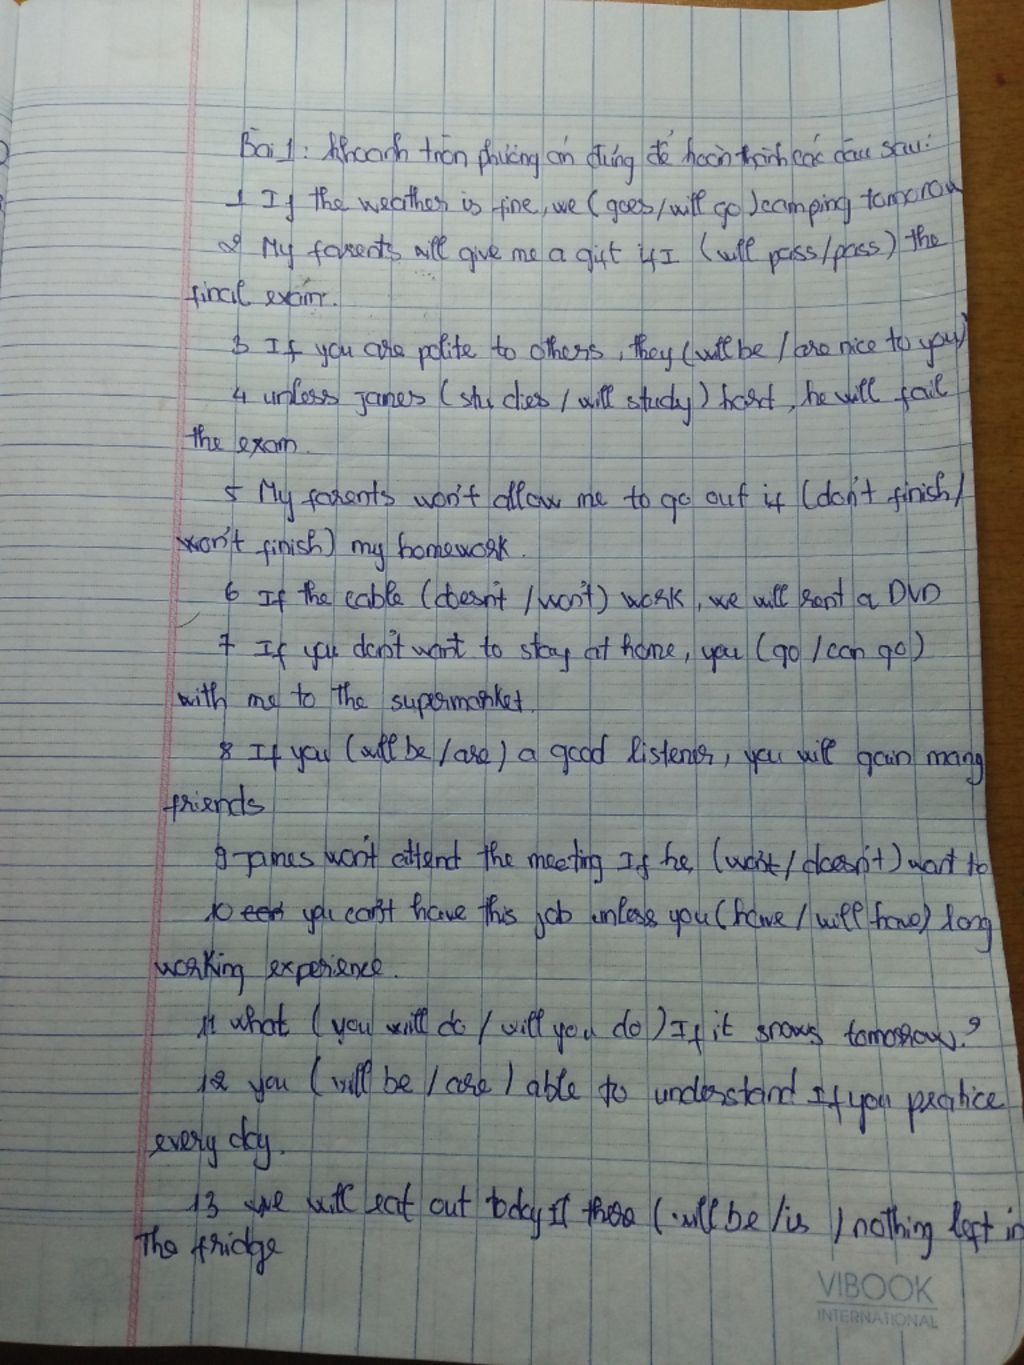 Bài 1: Khoanh tròn phương án đúng để hoàn thành các câu sau:
1 If the weather is fine, we (goes/will go) camping tomorrow
2 My parents will give me a gift if I (will pass/pass) the
final exam.
3 If you are polite to others, they (will be / are nice to you)
4 unless James (studies / will study) hard, he will fail
the exam.
5 My parents won't allow me to go out if (don't finish/
won't finish) my homework.
6 If the cable (doesn't / won't) work, we will rent a DVD
7 If you don't want to stay at home, you (go / can go)
with me to the supermarket.
8 If you (will be / are) a good listener, you will gain many
friends
9 James won't attend the meeting If he, (won't / doesn't) want to
10 you can't have this job unless you (have / will have) long
working experience.
11 what (you will do / will you do) If it snows tomorrow?
12 you (will be / are) able to understand If you pratice
every day.
13 we will eat out today If there (will be / is ) nothing left in
The fridge
VIBOOK
INTERNATIONAL